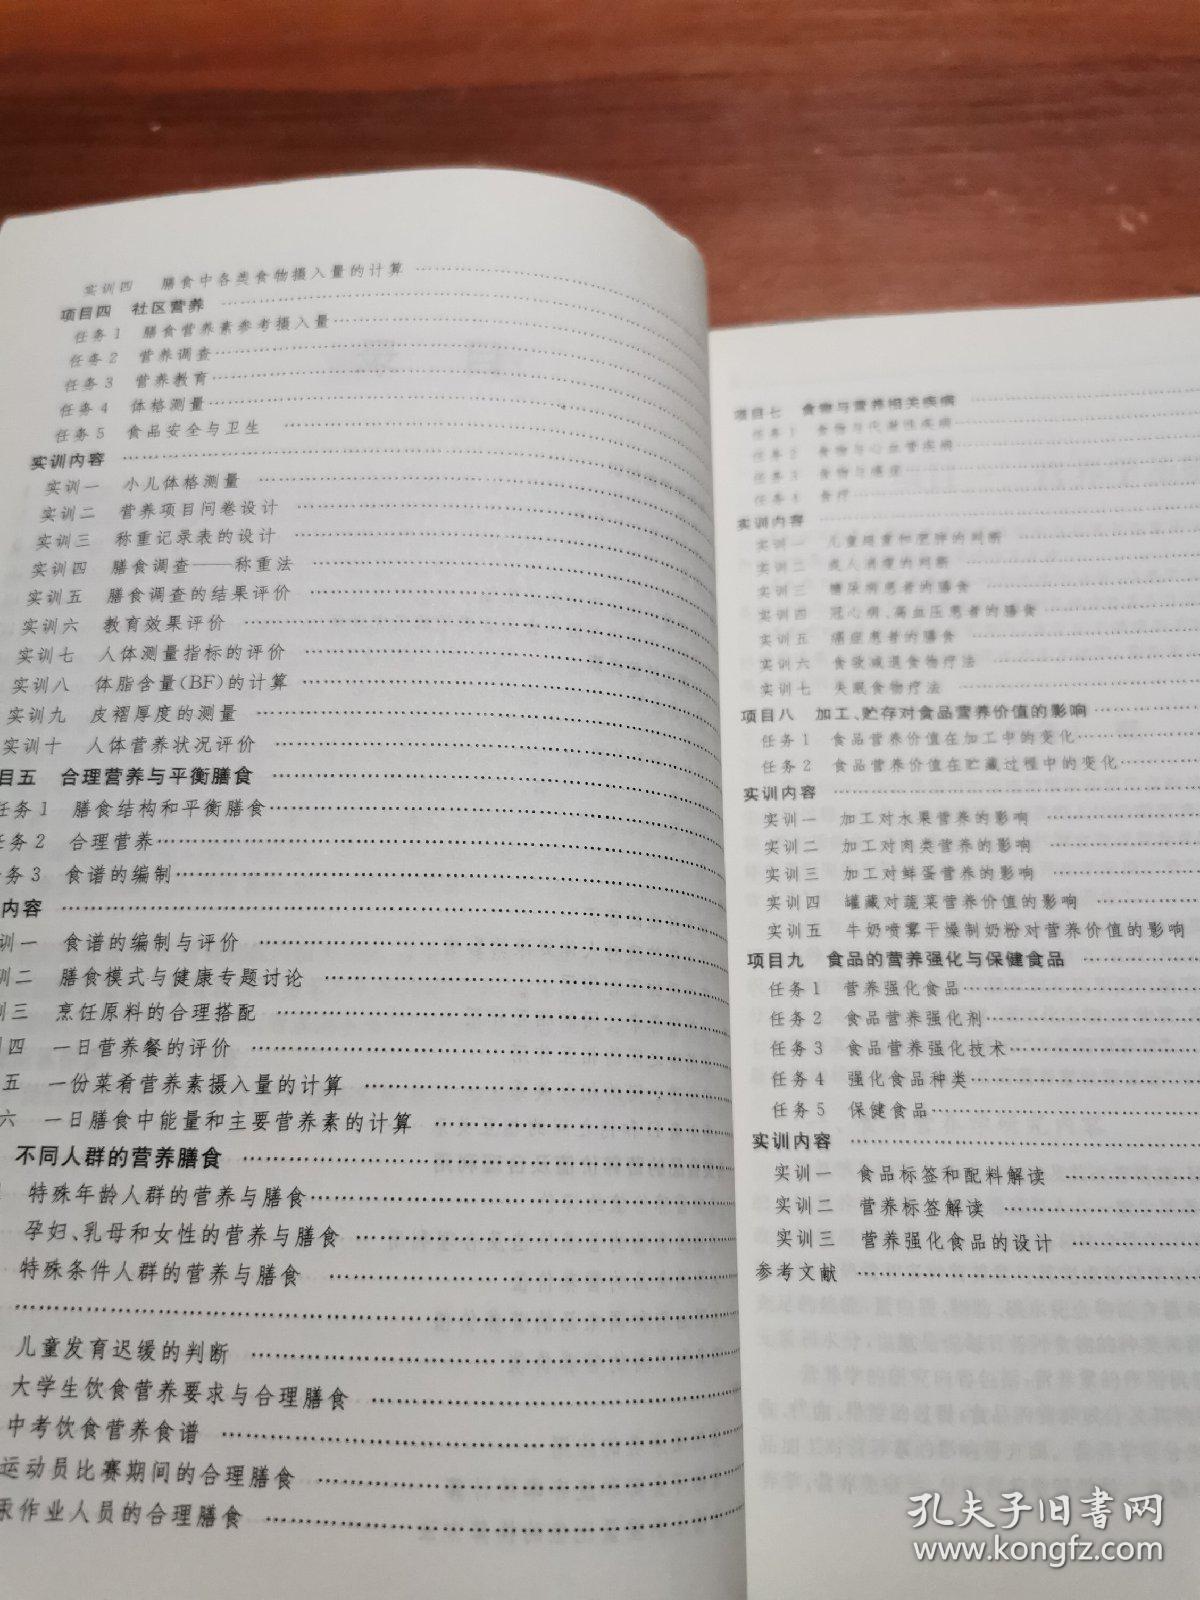 实训四 膳食中各类食物摄入量的计算
项目四 社区营养
任务1 膳食营养素参考摄入量
任务2 营养调查
任务3 营养教育
任务4 体格测量
任务5 食品安全与卫生
实训内容
实训一 小儿体格测量
实训二 营养项目问卷设计
实训三 称重记录表的设计
实训四 膳食调查——称重法
实训五 膳食调查的结果评价
实训六 教育效果评价
实训七 人体测量指标的评价
实训八 体脂含量(BF)的计算
实训九 皮褶厚度的测量
实训十 人体营养状况评价
目五 合理营养与平衡膳食
任务1 膳食结构和平衡膳食
任务2 合理营养
务3 食谱的编制
内容
训一 食谱的编制与评价
训二 膳食模式与健康专题讨论
训三 烹饪原料的合理搭配
四 一日营养餐的评价
五 一份菜肴营养素摄入量的计算
六 一日膳食中能量和主要营养素的计算
不同人群的营养膳食
特殊年龄人群的营养与膳食
孕妇、乳母和女性的营养与膳食
特殊条件人群的营养与膳食
儿童发育迟缓的判断
大学生饮食营养要求与合理膳食
中考饮食营养食谱
运动员比赛期间的合理膳食
作业人员的合理膳食
项目七 食物与营养相关疾病
任务1 食物与代谢性疾病
任务2 食物与心血管疾病
任务3 食物与癌症
任务4 食疗
实训内容
实训一 儿童超重和肥胖的判断
实训二 成人消瘦的判断
实训三 糖尿病患者的膳食
实训四 冠心病、高血压患者的膳食
实训五 癌症患者的膳食
实训六 食欲减退食物疗法
实训七 失眠食物疗法
项目八 加工、贮存对食品营养价值的影响
任务1 食品营养价值在加工中的变化
任务2 食品营养价值在贮藏过程中的变化
实训内容
实训一 加工对水果营养的影响
实训二 加工对肉类营养的影响
实训三 加工对鲜蛋营养的影响
实训四 罐藏对蔬菜营养价值的影响
实训五 牛奶喷雾干燥制奶粉对营养价值的影响
项目九 食品的营养强化与保健食品
任务1 营养强化食品
任务2 食品营养强化剂
任务3 食品营养强化技术
任务4 强化食品种类
任务5 保健食品
实训内容
实训一 食品标签和配料解读
实训二 营养标签解读
实训三 营养强化食品的设计
参考文献
孔夫子旧书网
www.kongfz.com